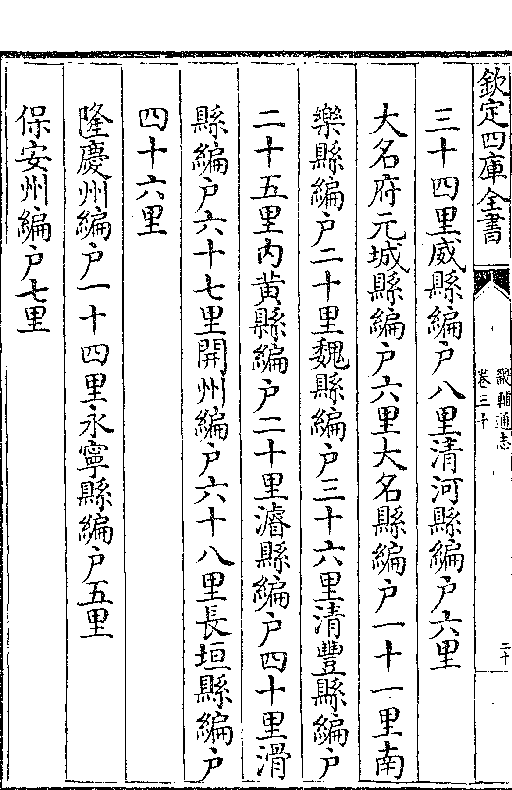 欽定四庫全書
畿輔通志
卷三十
二十
三十四里威縣編户八里清河縣編户六里
大名府元城縣編户六里大名縣編户一十一里南
樂縣編户二十里魏縣編户三十六里清豐縣編户
二十五里内黄縣編户二十里濬縣編户四十里滑
縣編户六十七里開州編户六十八里長垣縣編户
四十六里
隆慶州編户一十四里永寧縣編户五里
保安州編户七里